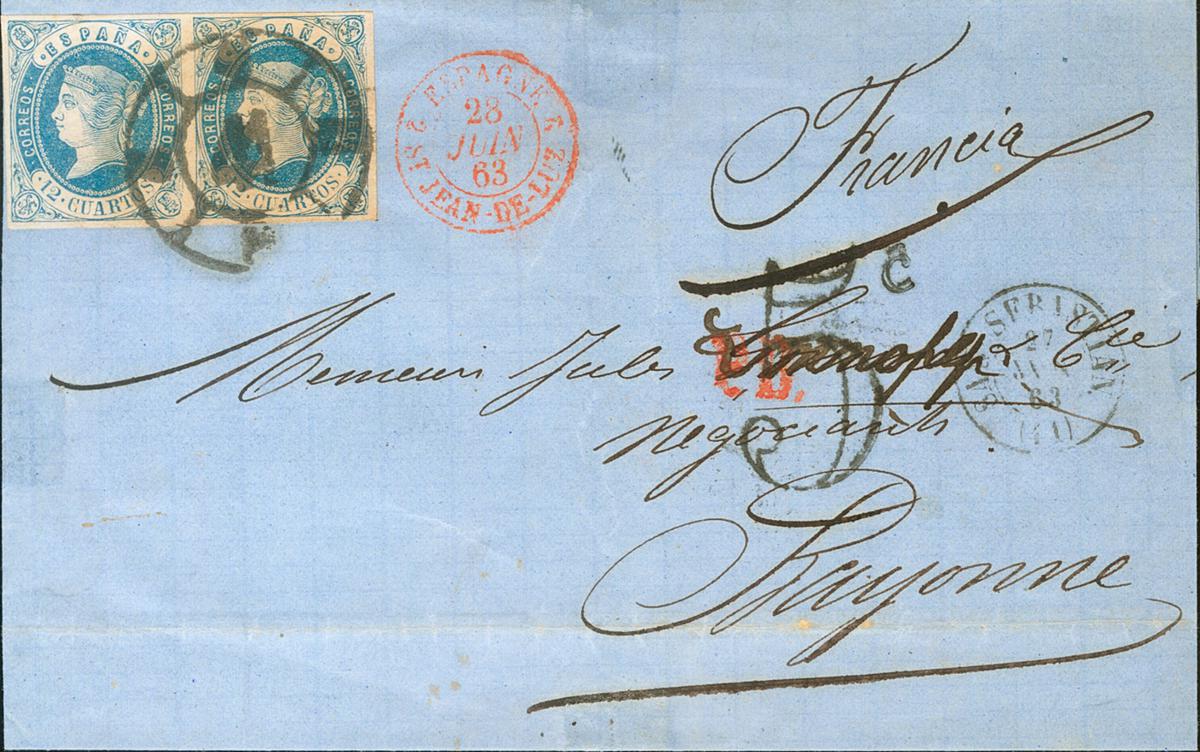 · ESPAÑA · · ESPAÑA ·
CORREOS CORREOS CORREOS CORREOS
12 · CUARTOS · 12 · CUARTOS ·
ESPAGNE
28
JUIN
63
ST JEAN-DE-LUZ
Francia
C
SAN SEBASTIAN
27
63
P.D.
Messieurs Jules & Cie
Negociants
Bayonne